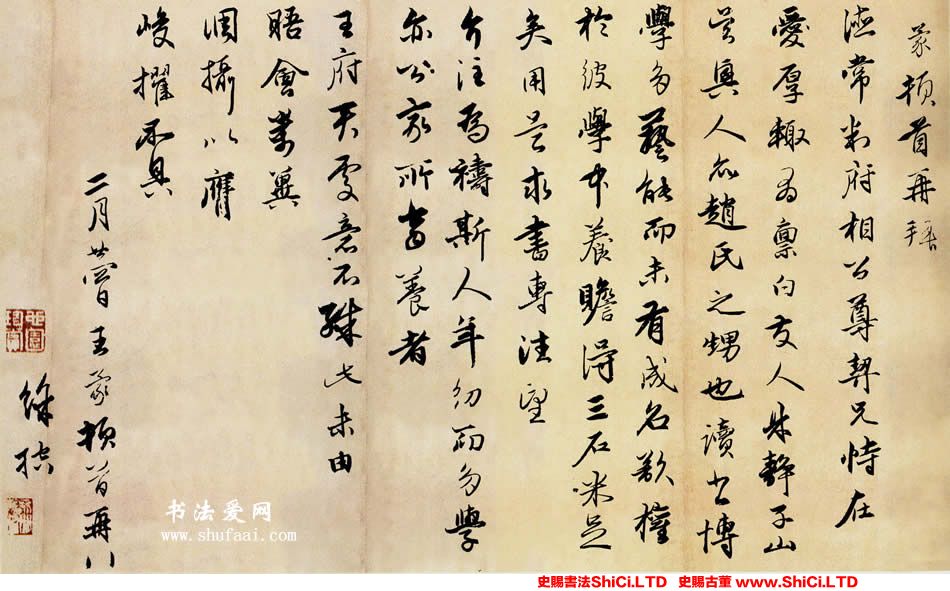 蒙頓首再拜
德常判府相公尊契兄恃在
愛厚輒為稟白友人朱靜子山
吳興人亦趙氏之甥也讀書博
學多藝能而未有成名欲權
於彼學中養贍得三石米足
矣用是求書專注望
介注為禱斯人年幼而多學
亦公家所當養者
王府天處意不殊此未由
晤會葉冀
調攝以膺
峻擢不具
二月廿四日王蒙頓首再拜
书法爱网
www.shufaai.com
史賜書法ShiCi.LTD 史賜古董 www.ShiCi.LTD